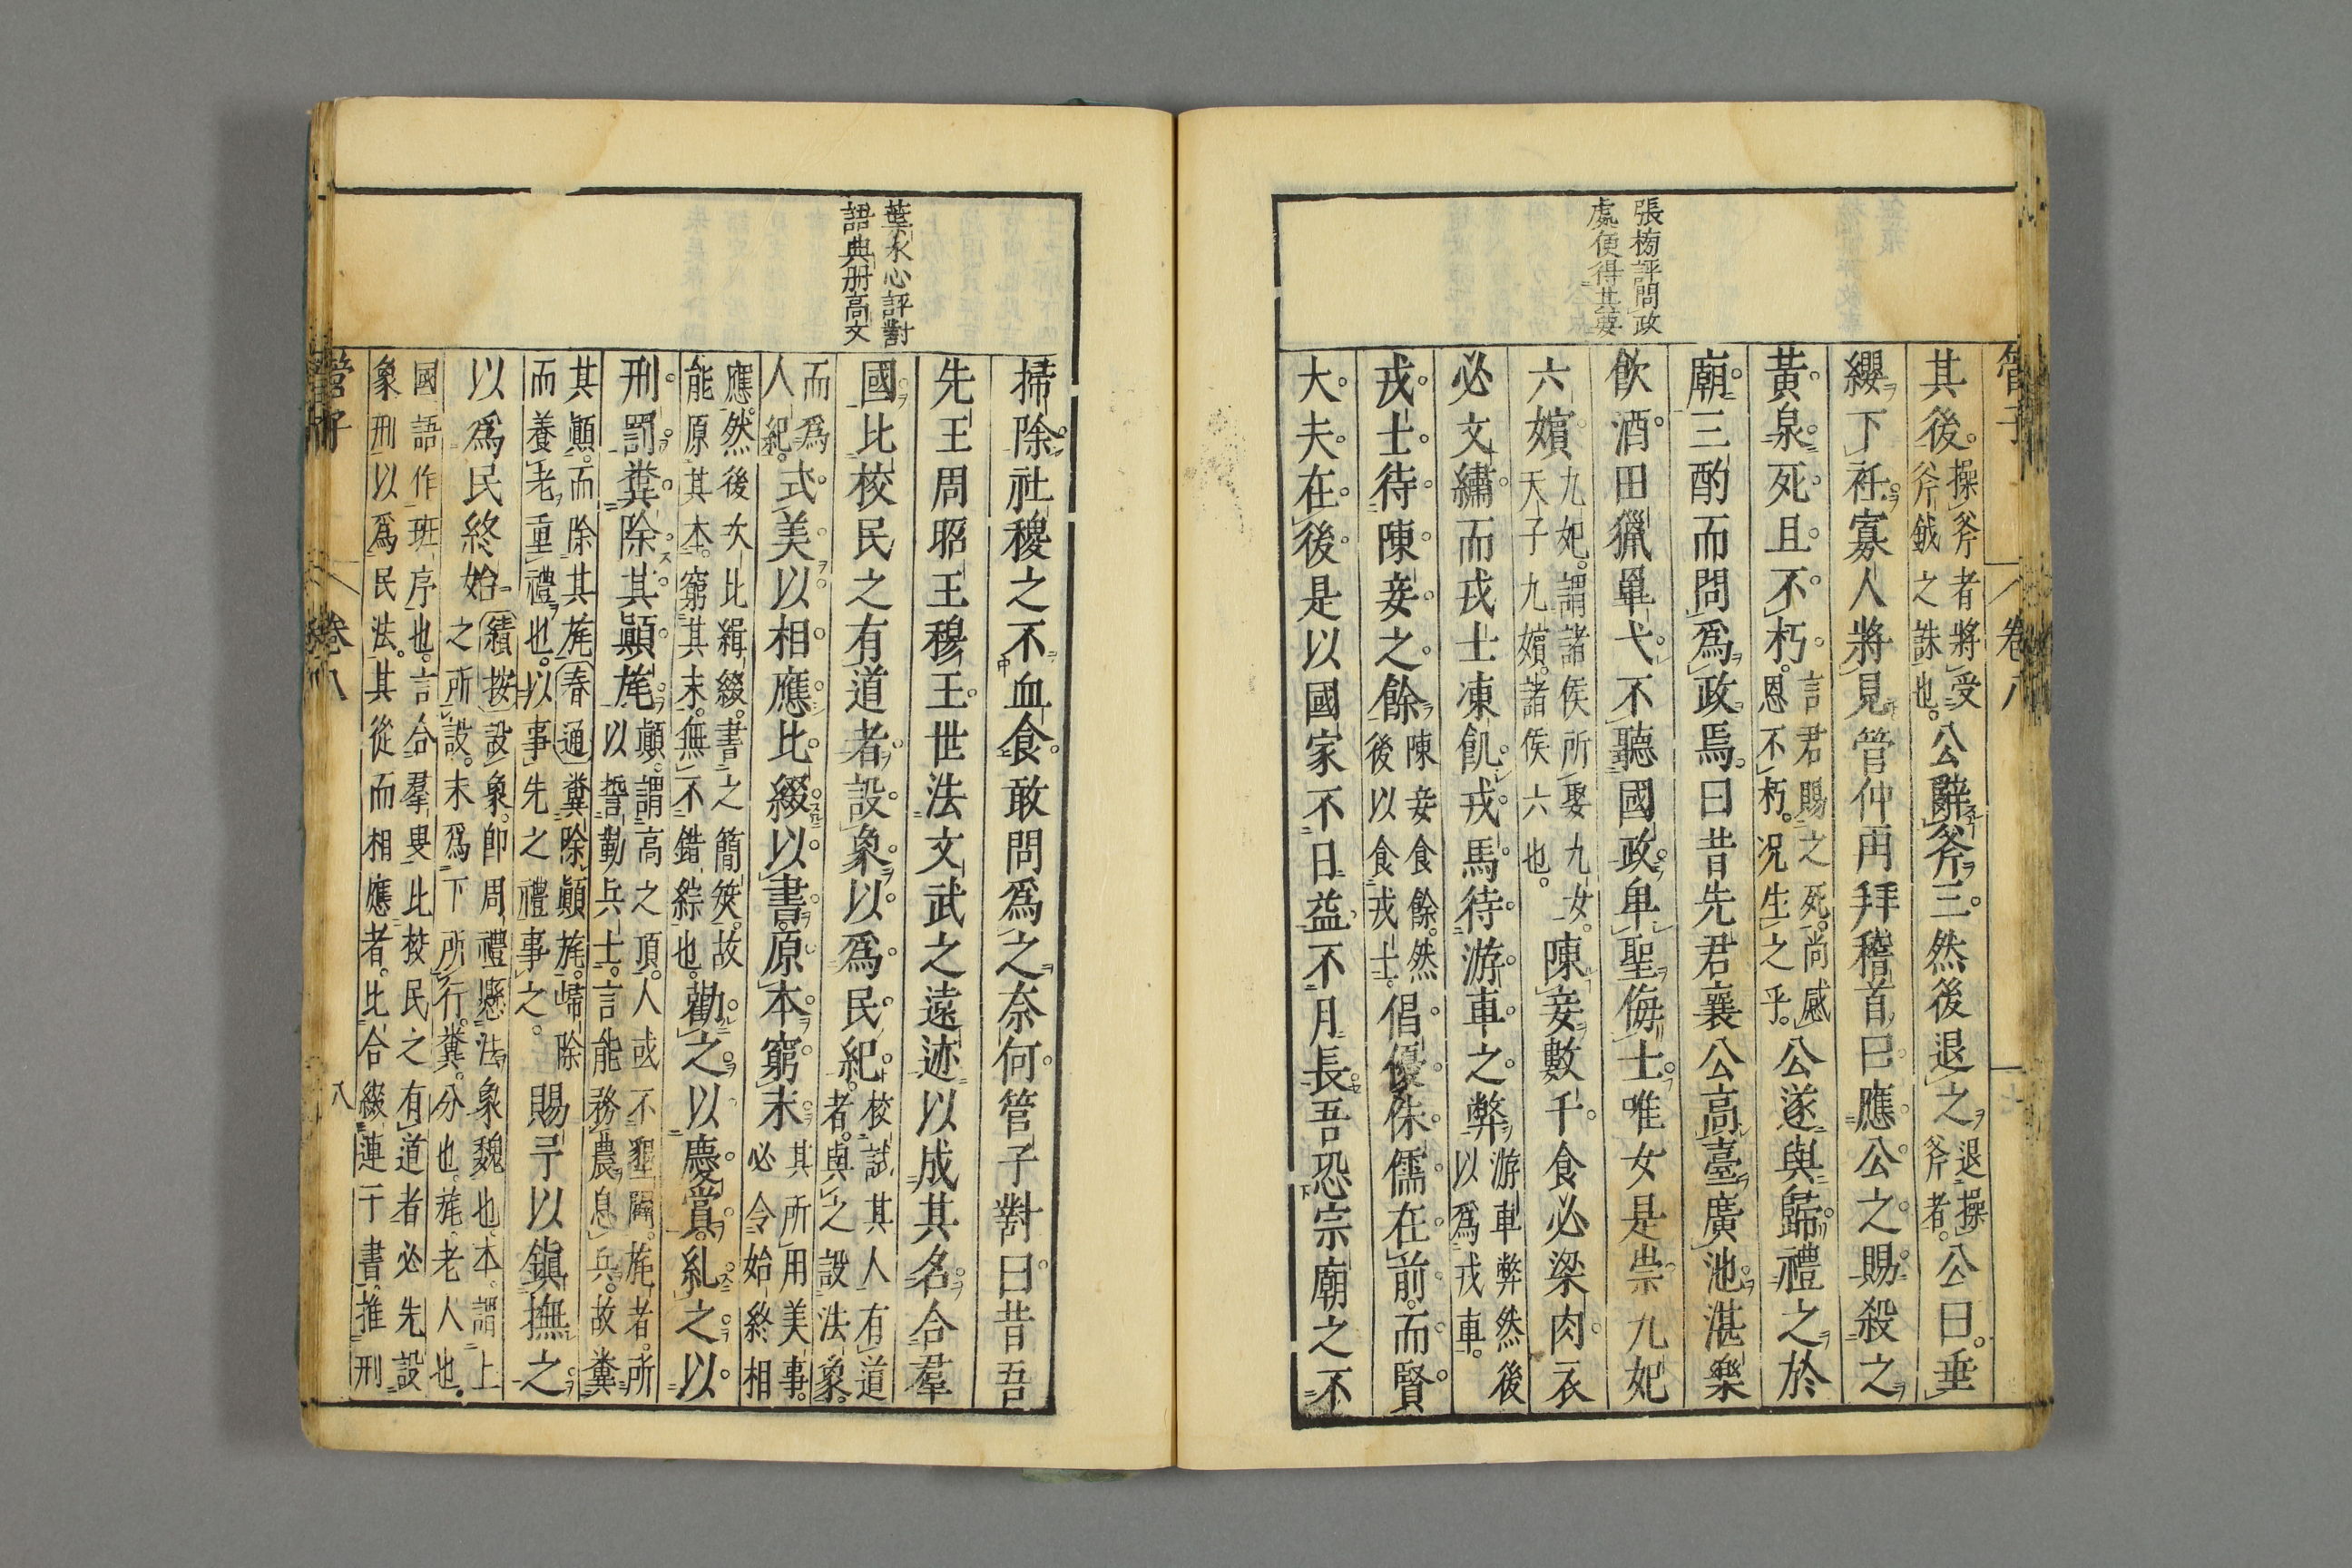 管子
卷八
張榜評問政
處便得其要
其後。操斧者將受斧鉞之誅也。公辭斧三。然後退之退操斧者。公曰。垂
纓下衽寡人將見管仲再拜稽首曰應公之賜殺之
黃泉死且不朽。言君賜之死。尚感恩不朽。况生之乎。公遂與歸禮之於
廟三酌而問爲政焉。曰昔先君襄公高臺廣池湛樂
飲酒田獵畢弋不聽國政卑聖侮士唯女是崇九妃
六嬪九妃。謂諸侯所娶九女。天子九嬪。諸侯六也。陳妾數千。食必梁肉衣
必文繡而戎士凍飢。戎馬待游車之弊游車弊然後以爲戎車。
戎士待陳妾之餘陳妾食餘。然後以食戎士。倡優侏儒在前。而賢
大夫在後是以國家不日益不月長吾恐宗廟之不
葉水心評對
語典册高文
掃除社稷之不血食敢問爲之奈何管子對曰昔吾
先王周昭王穆王世法文武之遠迹以成其名合羣
國比校民之有道者設象以爲民紀。校試其人有道者。與之設法象。
而爲人紀。式美以相應比綴以書。原本窮末其所用美事。必令始終相
應。然後次比緝綴。書之簡筴。故能原其本。窮其末。無不錯綜也。勸之以慶賞。糺之以
刑罰糞除其顚旄顚。謂高之頂。人或不墾闢。旄者。所以誓勤兵士。言能務農息兵。故糞
其顚。而除其旄春通糞除顚旄。㷌除而養老重禮也。以事先之禮事之。賜予以鎭撫之
以爲民終始續按設象。即周禮懸法象魏也。本。謂上之所設。末爲下所行。糞。分也。旄。老人也。
國語作班序也。言合羣叟比挍民之有道者必先設象刑以爲民法。其從而相應者。比合綴連于書推刑
管子
卷八
八